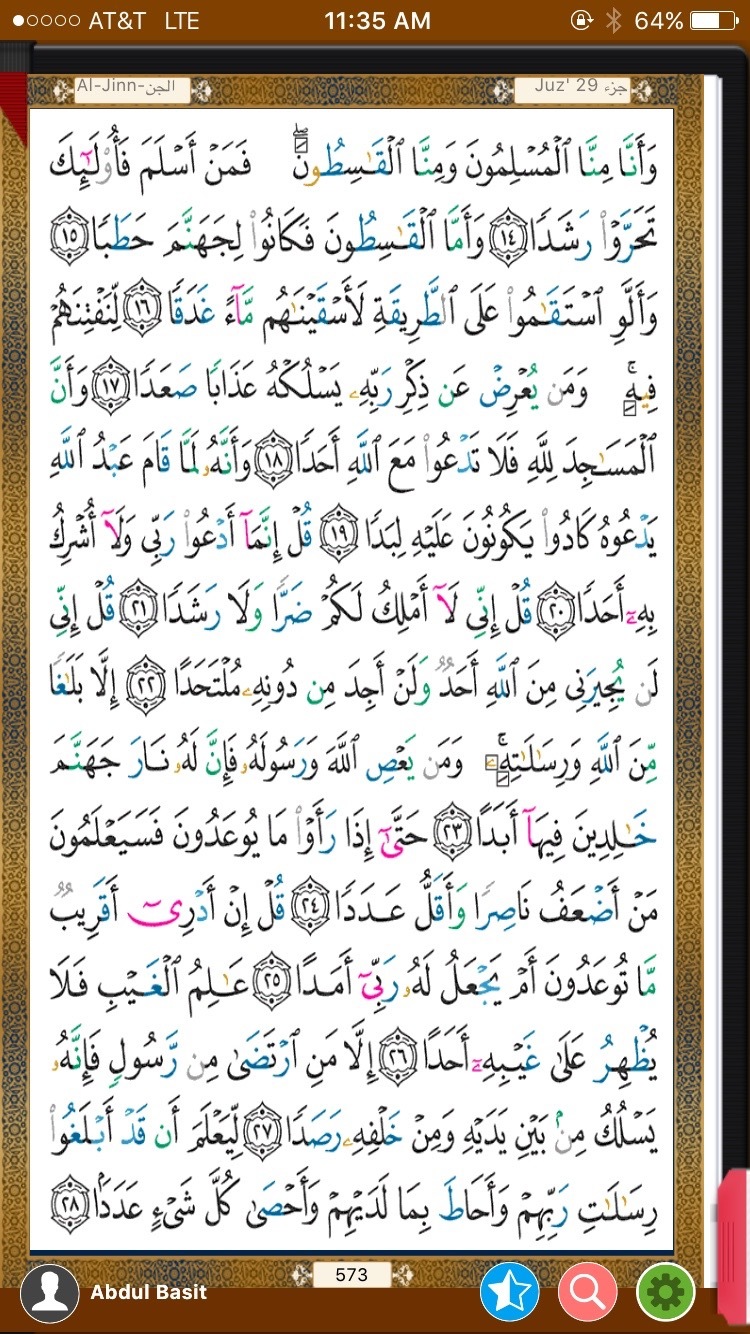 AT&T LTE 11:35 AM 64%
Al-Jinn-الجن Juz' 29 جزء
وَأَنَّا مِنَّا ٱلْمُسْلِمُونَ وَمِنَّا ٱلْقَـٰسِطُونَ ۖ فَمَنْ أَسْلَمَ فَأُو۟لَـٰٓئِكَ
تَحَرَّوْا۟ رَشَدًا ١٤ وَأَمَّا ٱلْقَـٰسِطُونَ فَكَانُوا۟ لِجَهَنَّمَ حَطَبًا ١٥
وَأَلَّوِ ٱسْتَقَـٰمُوا۟ عَلَى ٱلطَّرِيقَةِ لَأَسْقَيْنَـٰهُم مَّآءً غَدَقًا ١٦ لِّنَفْتِنَهُمْ
فِيهِ ۚ وَمَن يُعْرِضْ عَن ذِكْرِ رَبِّهِۦ يَسْلُكْهُ عَذَابًا صَعَدًا ١٧ وَأَنَّ
ٱلْمَسَـٰجِدَ لِلَّهِ فَلَا تَدْعُوا۟ مَعَ ٱللَّهِ أَحَدًا ١٨ وَأَنَّهُۥ لَمَّا قَامَ عَبْدُ ٱللَّهِ
يَدْعُوهُ كَادُوا۟ يَكُونُونَ عَلَيْهِ لِبَدًا ١٩ قُلْ إِنَّمَآ أَدْعُوا۟ رَبِّى وَلَآ أُشْرِكُ
بِهِۦٓ أَحَدًا ٢٠ قُلْ إِنِّى لَآ أَمْلِكُ لَكُمْ ضَرًّا وَلَا رَشَدًا ٢١ قُلْ إِنِّى
لَن يُجِيرَنِى مِنَ ٱللَّهِ أَحَدٌ وَلَنْ أَجِدَ مِن دُونِهِۦ مُلْتَحَدًا ٢٢ إِلَّا بَلَـٰغًا
مِّنَ ٱللَّهِ وَرِسَـٰلَـٰتِهِۦ ۚ وَمَن يَعْصِ ٱللَّهَ وَرَسُولَهُۥ فَإِنَّ لَهُۥ نَارَ جَهَنَّمَ
خَـٰلِدِينَ فِيهَآ أَبَدًا ٢٣ حَتَّىٰٓ إِذَا رَأَوْا۟ مَا يُوعَدُونَ فَسَيَعْلَمُونَ
مَنْ أَضْعَفُ نَاصِرًا وَأَقَلُّ عَدَدًا ٢٤ قُلْ إِنْ أَدْرِىٓ أَقَرِيبٌ
مَّا تُوعَدُونَ أَمْ يَجْعَلُ لَهُۥ رَبِّىٓ أَمَدًا ٢٥ عَـٰلِمُ ٱلْغَيْبِ فَلَا
يُظْهِرُ عَلَىٰ غَيْبِهِۦٓ أَحَدًا ٢٦ إِلَّا مَنِ ٱرْتَضَىٰ مِن رَّسُولٍ فَإِنَّهُۥ
يَسْلُكُ مِنۢ بَيْنِ يَدَيْهِ وَمِنْ خَلْفِهِۦ رَصَدًا ٢٧ لِّيَعْلَمَ أَن قَدْ أَبْلَغُوا۟
رِسَـٰلَـٰتِ رَبِّهِمْ وَأَحَاطَ بِمَا لَدَيْهِمْ وَأَحْصَىٰ كُلَّ شَىْءٍ عَدَدًۢا ٢٨
573
Abdul Basit